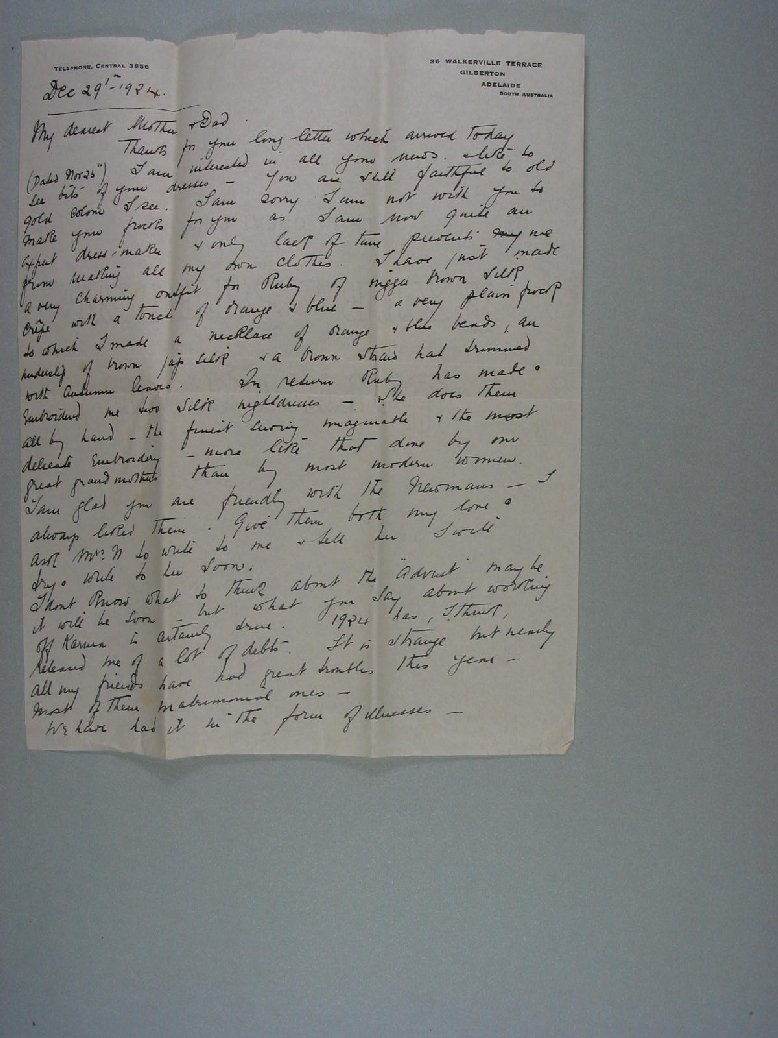 TELEPHONE, CENTRAL 3856
36 WALKERVILLE TERRACE
GILBERTON
ADELAIDE
SOUTH AUSTRALIA
Dec 29th - 1924.
My dearest Mother & Dad.
Thanks for your long letter which arrived today
(Dated Nov 25th) I am interested in all your news. & like to
see bits of your dresses — You are still faithful to old
gold colour I see. I am sorry I am not with you to
make your frocks for you as I am now quite an
expert dress maker & only lack of time prevents my me
from making all my own clothes. I have just made
a very charming outfit for Ruby of nigger brown silk
crêpe with a touch of orange & blue — a very plain frock
to which I made a necklace of orange & blue beads, an
underslip of brown Jap silk & a brown straw hat trimmed
with Autumn leaves. In return Ruby has made &
Embroidered me two silk nightdresses — She does them
all by hand — the finest sewing imaginable & the most
delicate Embroidery — more like that done by our
great grandmothers than by most modern women.
I am glad you are friendly with the Newmans — I
always liked them. Give them both my love &
ask Mrs. N to write to me & tell her I will
try & write to her soon.
I dont know what to think about the "Advent" maybe
it will be soon — but what you say about working
off Karma is certainly true. 1924 has, I think,
released me of a lot of debts. It is strange but nearly
all my friends have had great troubles this year —
most of them matrimonial ones —
We have had it in the form of illnesses —